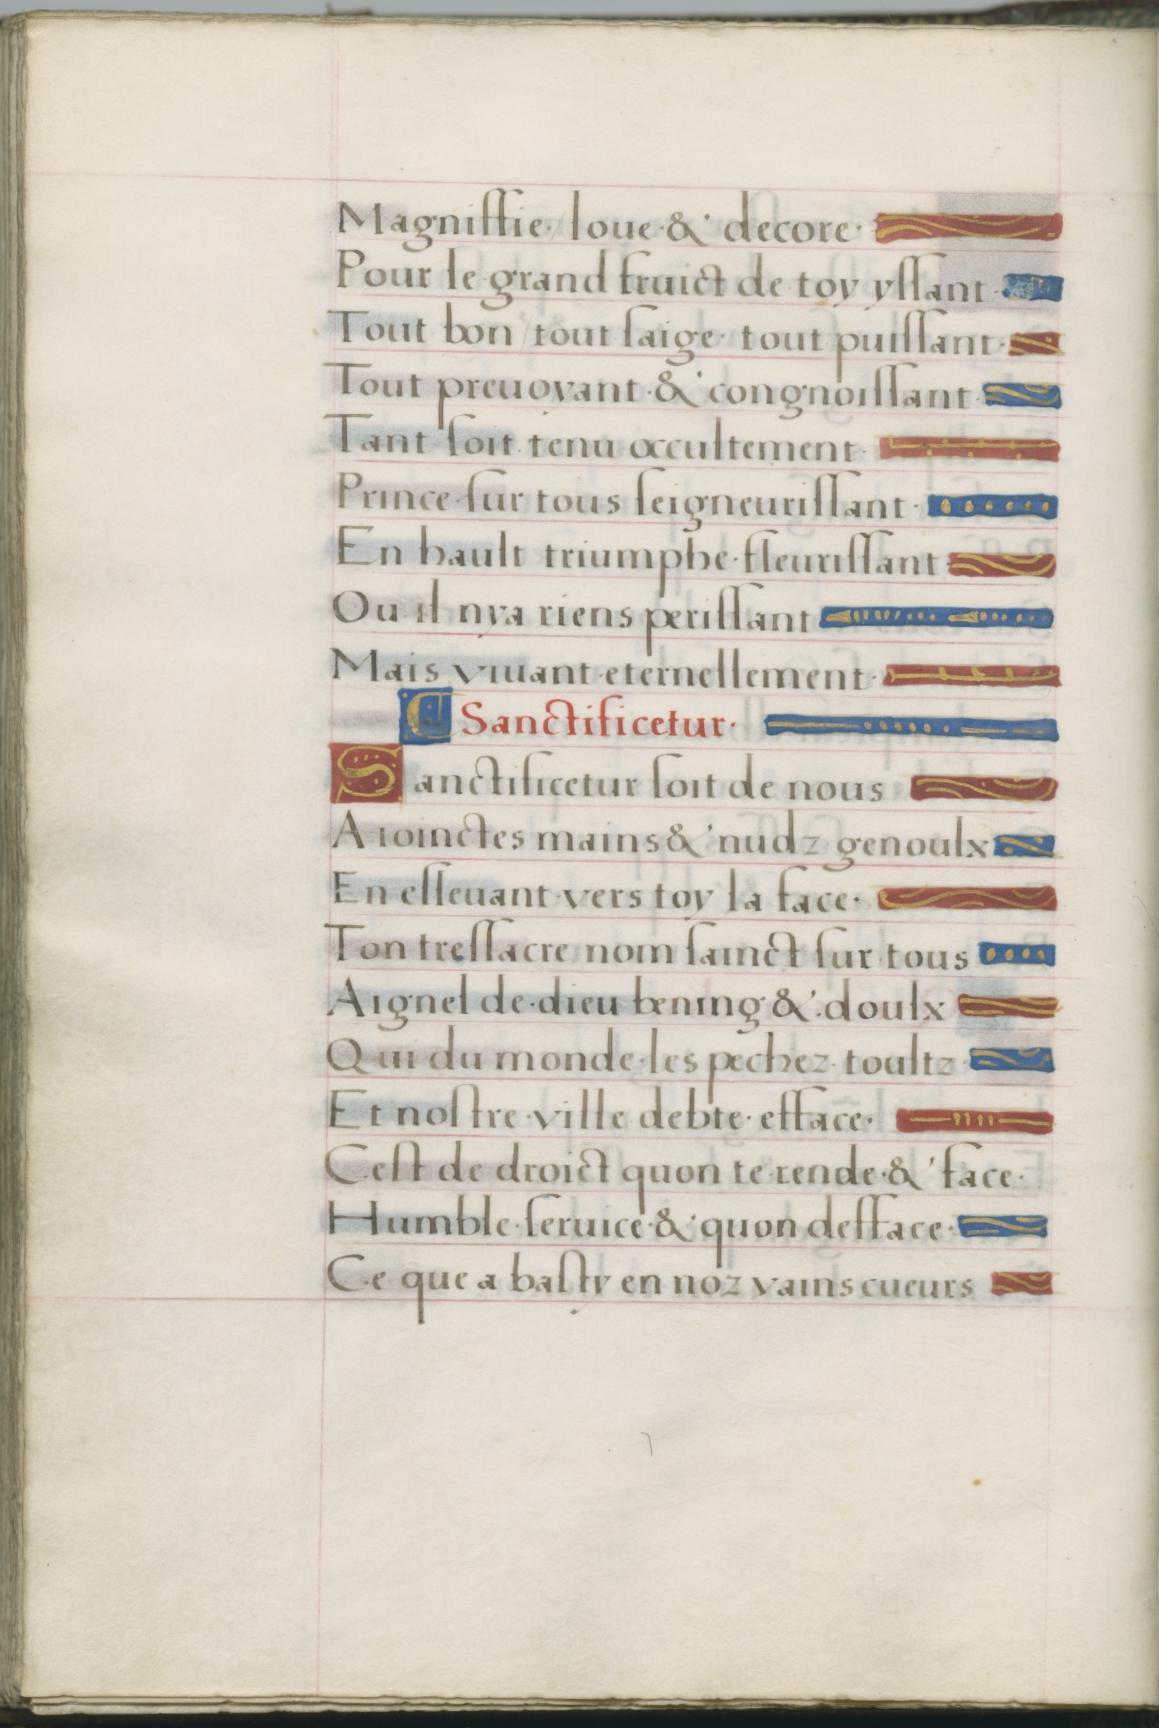 Magniffie. loue & decore.
Pour le grand fruict de toy yssant
Tout bon / tout saige. tout puissant.
Tout preuoyant & congnoissant
Tant soit tenu occultement.
Prince sur tous seigneurissant.
En hault triumphe fleurissant
Ou il nya riens perissant
Mais viuant eternellement.
Sanctificetur.
Sanctificetur soit de nous
A ioinctes mains & nudz genoulx
En esleuant vers toy la face.
Ton tressacre nom sainct sur tous
Aignel de dieu bening & doulx
Qui du monde les pechez toultz
Et nostre ville debte efface.
Cest de droict quon te rende & face.
Humble seruice & quon defface.
Ce que a basty en noz vains cueurs